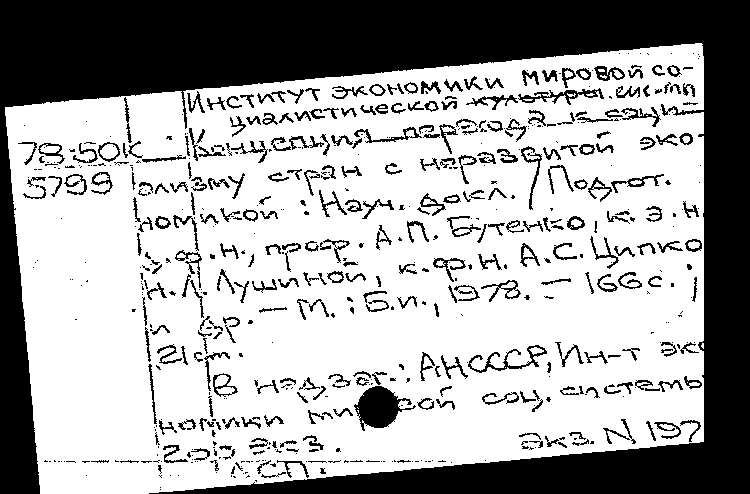 Институт экономики мировой со-
циалистической культуры. сис-мы
78:50К Концепция перехода к соци-
5799 ализму стран с неразвитой эко-
номикой : Науч. докл. / Подгот.
д.ф.н., проф. А.П. Бутенко, к.э.н.
Н.Л. Лушиной, к.ф.н. А.С. Ципко
и др. — М. : Б.и., 1978. — 166с. ;
21 см.
В надзаг.: АНСССР, Ин-т эко
номики мировой соц. системы
200 экз. Экз. N 197
ДСП.